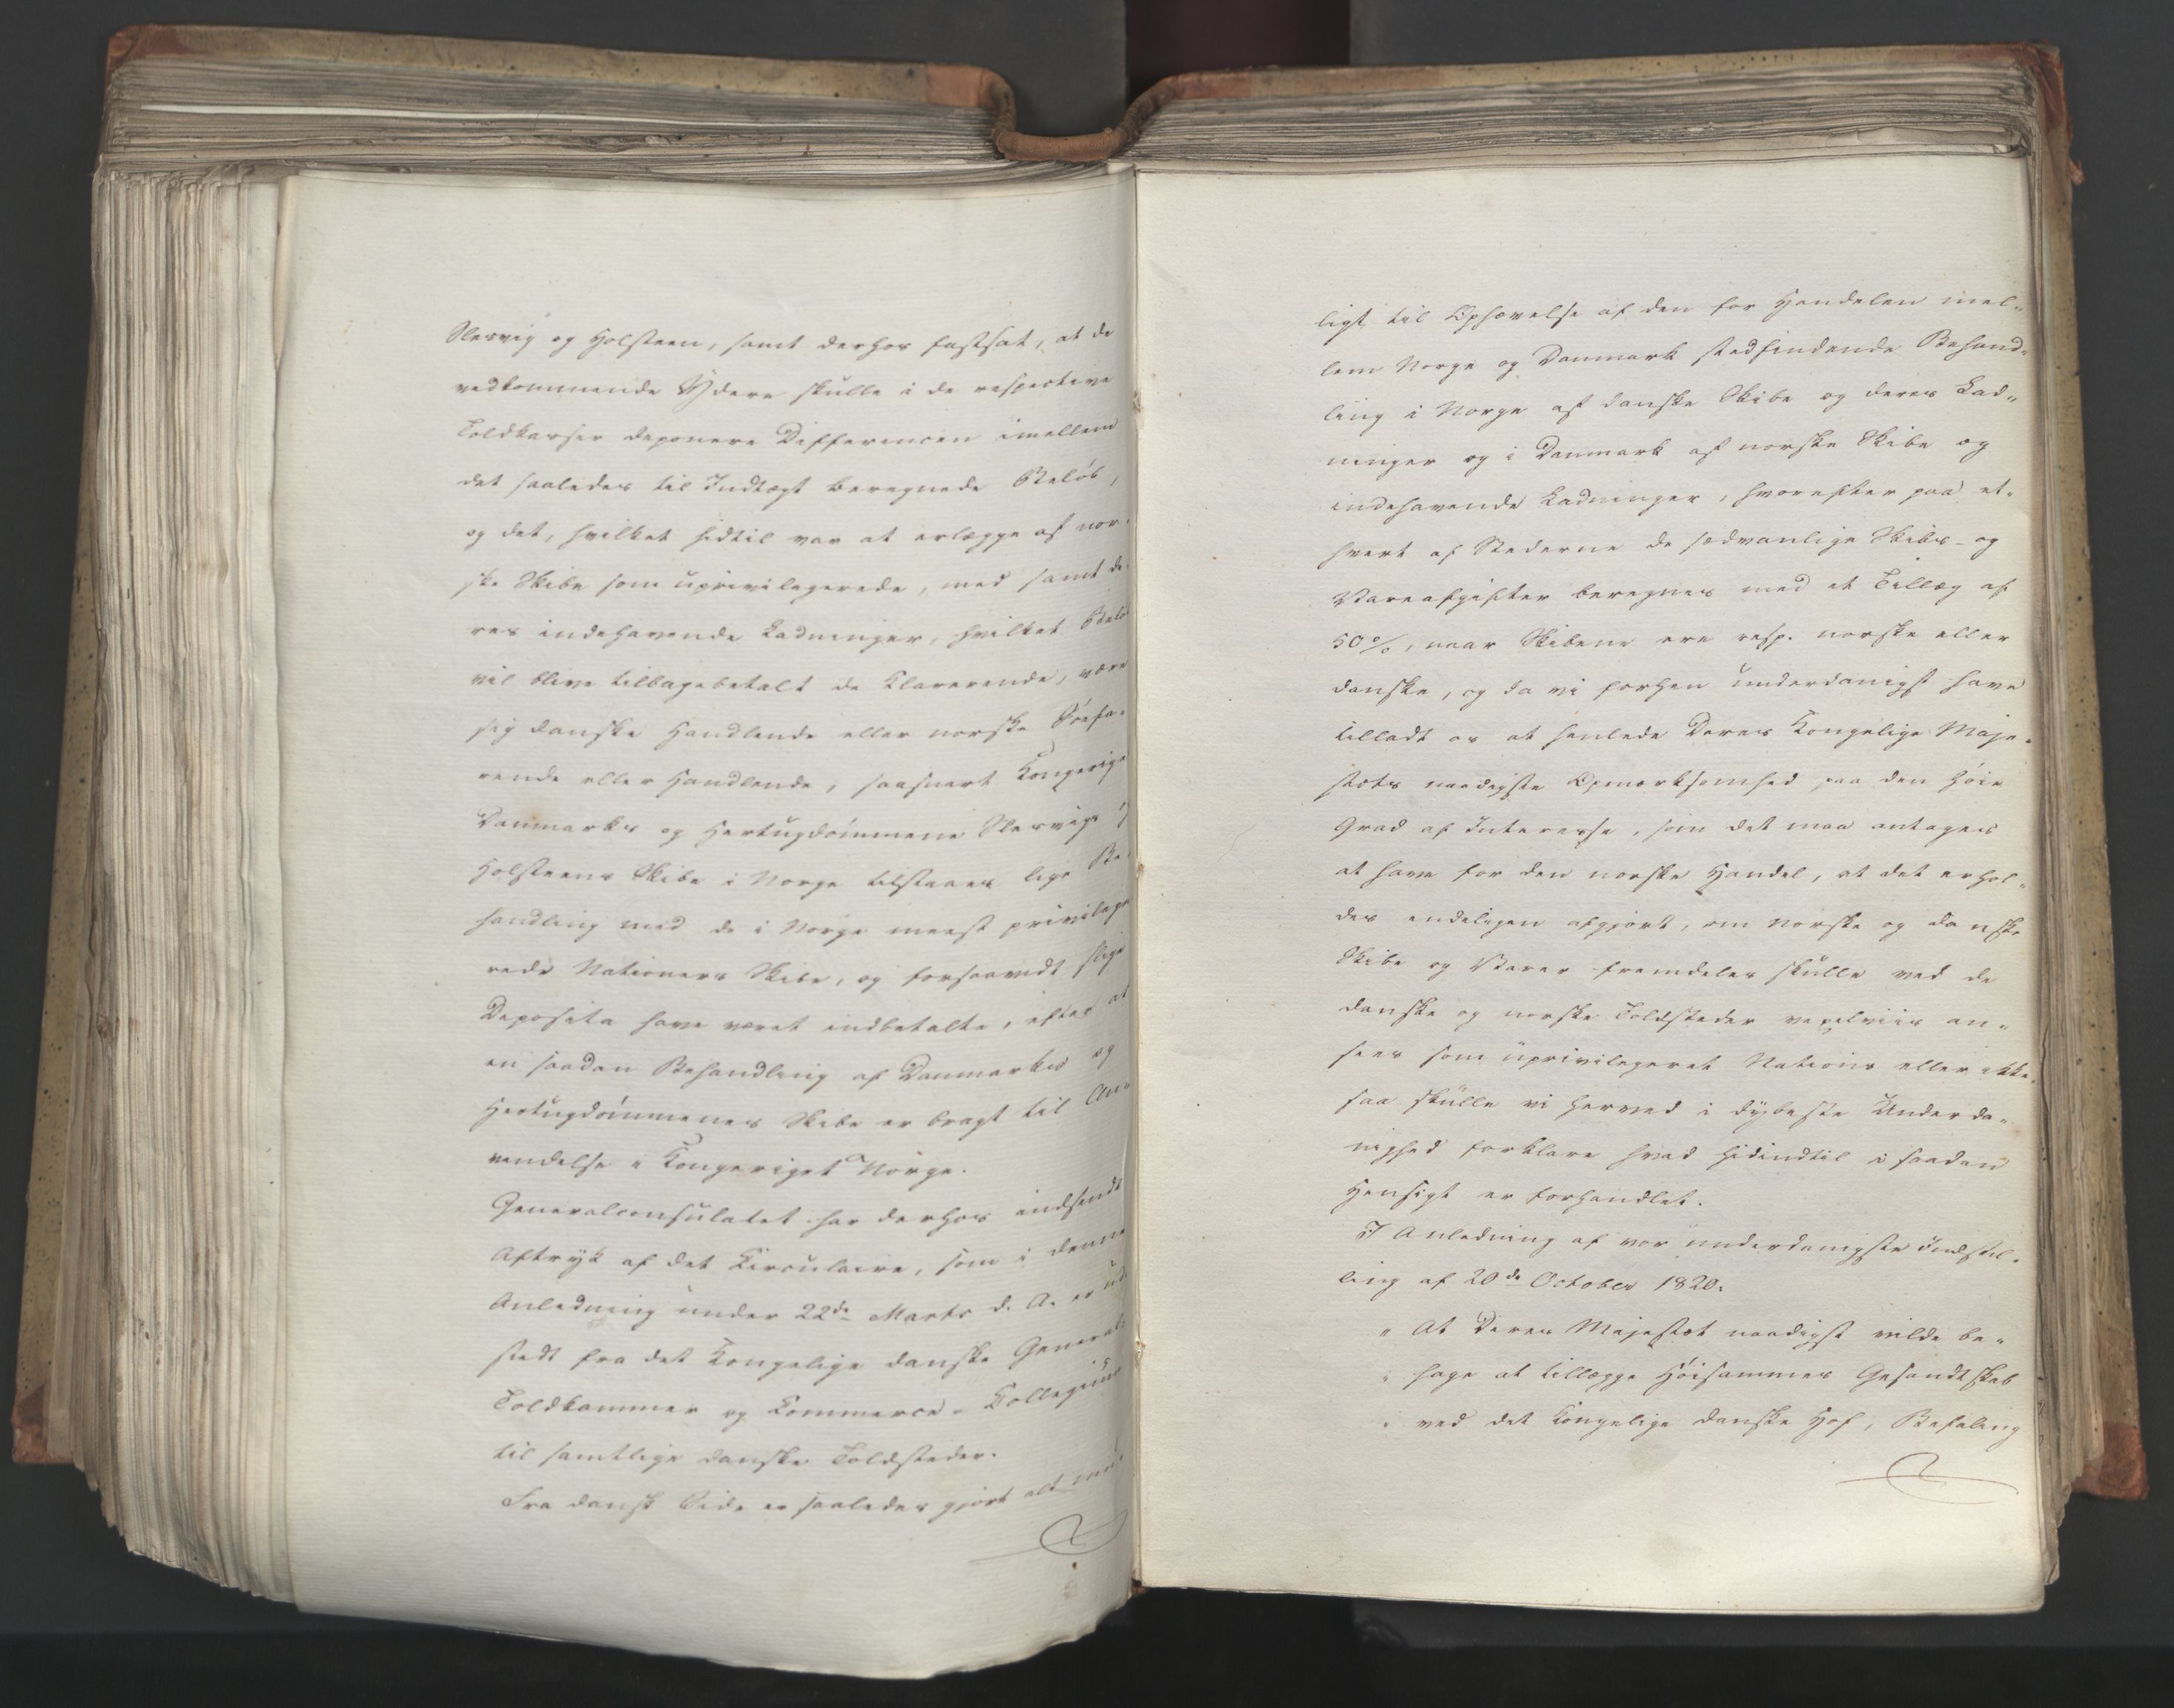 Slesvig og Holsteen, samt derhos fastsat, at de
vedkommende Ydere skulle i de respective
Toldkasser deponere Differencen imellem
det saaledes til Indtægt beregnede Beløb,
og det, hvilket hidtil var at erlægge af nor-
ske Skibe som uprivilegerede, med samt de-
res indehavende Ladninger, hvilket Beløb
vil blive tilbagebetalt de Klarerende, være
sig danske Handlende eller norske Søefa-
rende eller Handlende, saasnart Kongerige
Danmarks og Hertugdømmene Slesvigs og
Holsteens Skibe i Norge tilstaaes lige Be-
handling med de i Norge meest privilege
rede Nationers Skibe, og forsaavidt slige
Deposita have været indbetalte, efter at
en saadan Behandling af Danmarks og
Hertugdømmenes Skibe er bragt til An-
vendelse i Kongeriget Norge.
Generalconsulatet har derhos indsendt
Aftryk af det Circulaire, som i denne
Anledning under 22de Marts d. A. er ud-
stedt fra det Kongelige danske General-
Toldkammer og Commerce-Collegium
til samtlige danske Toldsteder.
Fra dansk Side er saaledes gjort alt mu-
ligt til Ophævelse af den for Handelen mel-
lem Norge og Danmark stedfindende Behand-
ling i Norge af danske Skibe og deres Lad-
ninger og i Danmark af norske Skibe og
indehavende Ladninger, hvorefter paa et-
hvert af Stederne de sædvanlige Skibs- og
Vareafgifter beregnes med et Tillæg af
50%, naar Skibene ere resp. norske eller
danske, og da vi forhen underdanigst have
tilladt os at henlede Deres Kongelige Maje-
stæts naadigste Opmærksomhed paa den høie
Grad af Interesse, som det maa antages
at have for den norske Handel, at det erhol-
des endeligen afgjort, om norske og danske
Skibe og Varer fremdeles skulle ved de
danske og norske Toldsteder vexelviis an-
sees som uprivilegeret Nations eller ikke,
saa skulle vi herved i dybeste Underda-
nighed forklare hvad hidindtil i saadan
Hensigt er forhandlet.
I Anledning af vor underdanigste Indstil-
ling af 20de October 1820:
" At Deres Majestæt naadigst vilde be-
" hage at tillægge Høisammes Gesandtskab
" ved det Kongelige danske Hof, Befaling